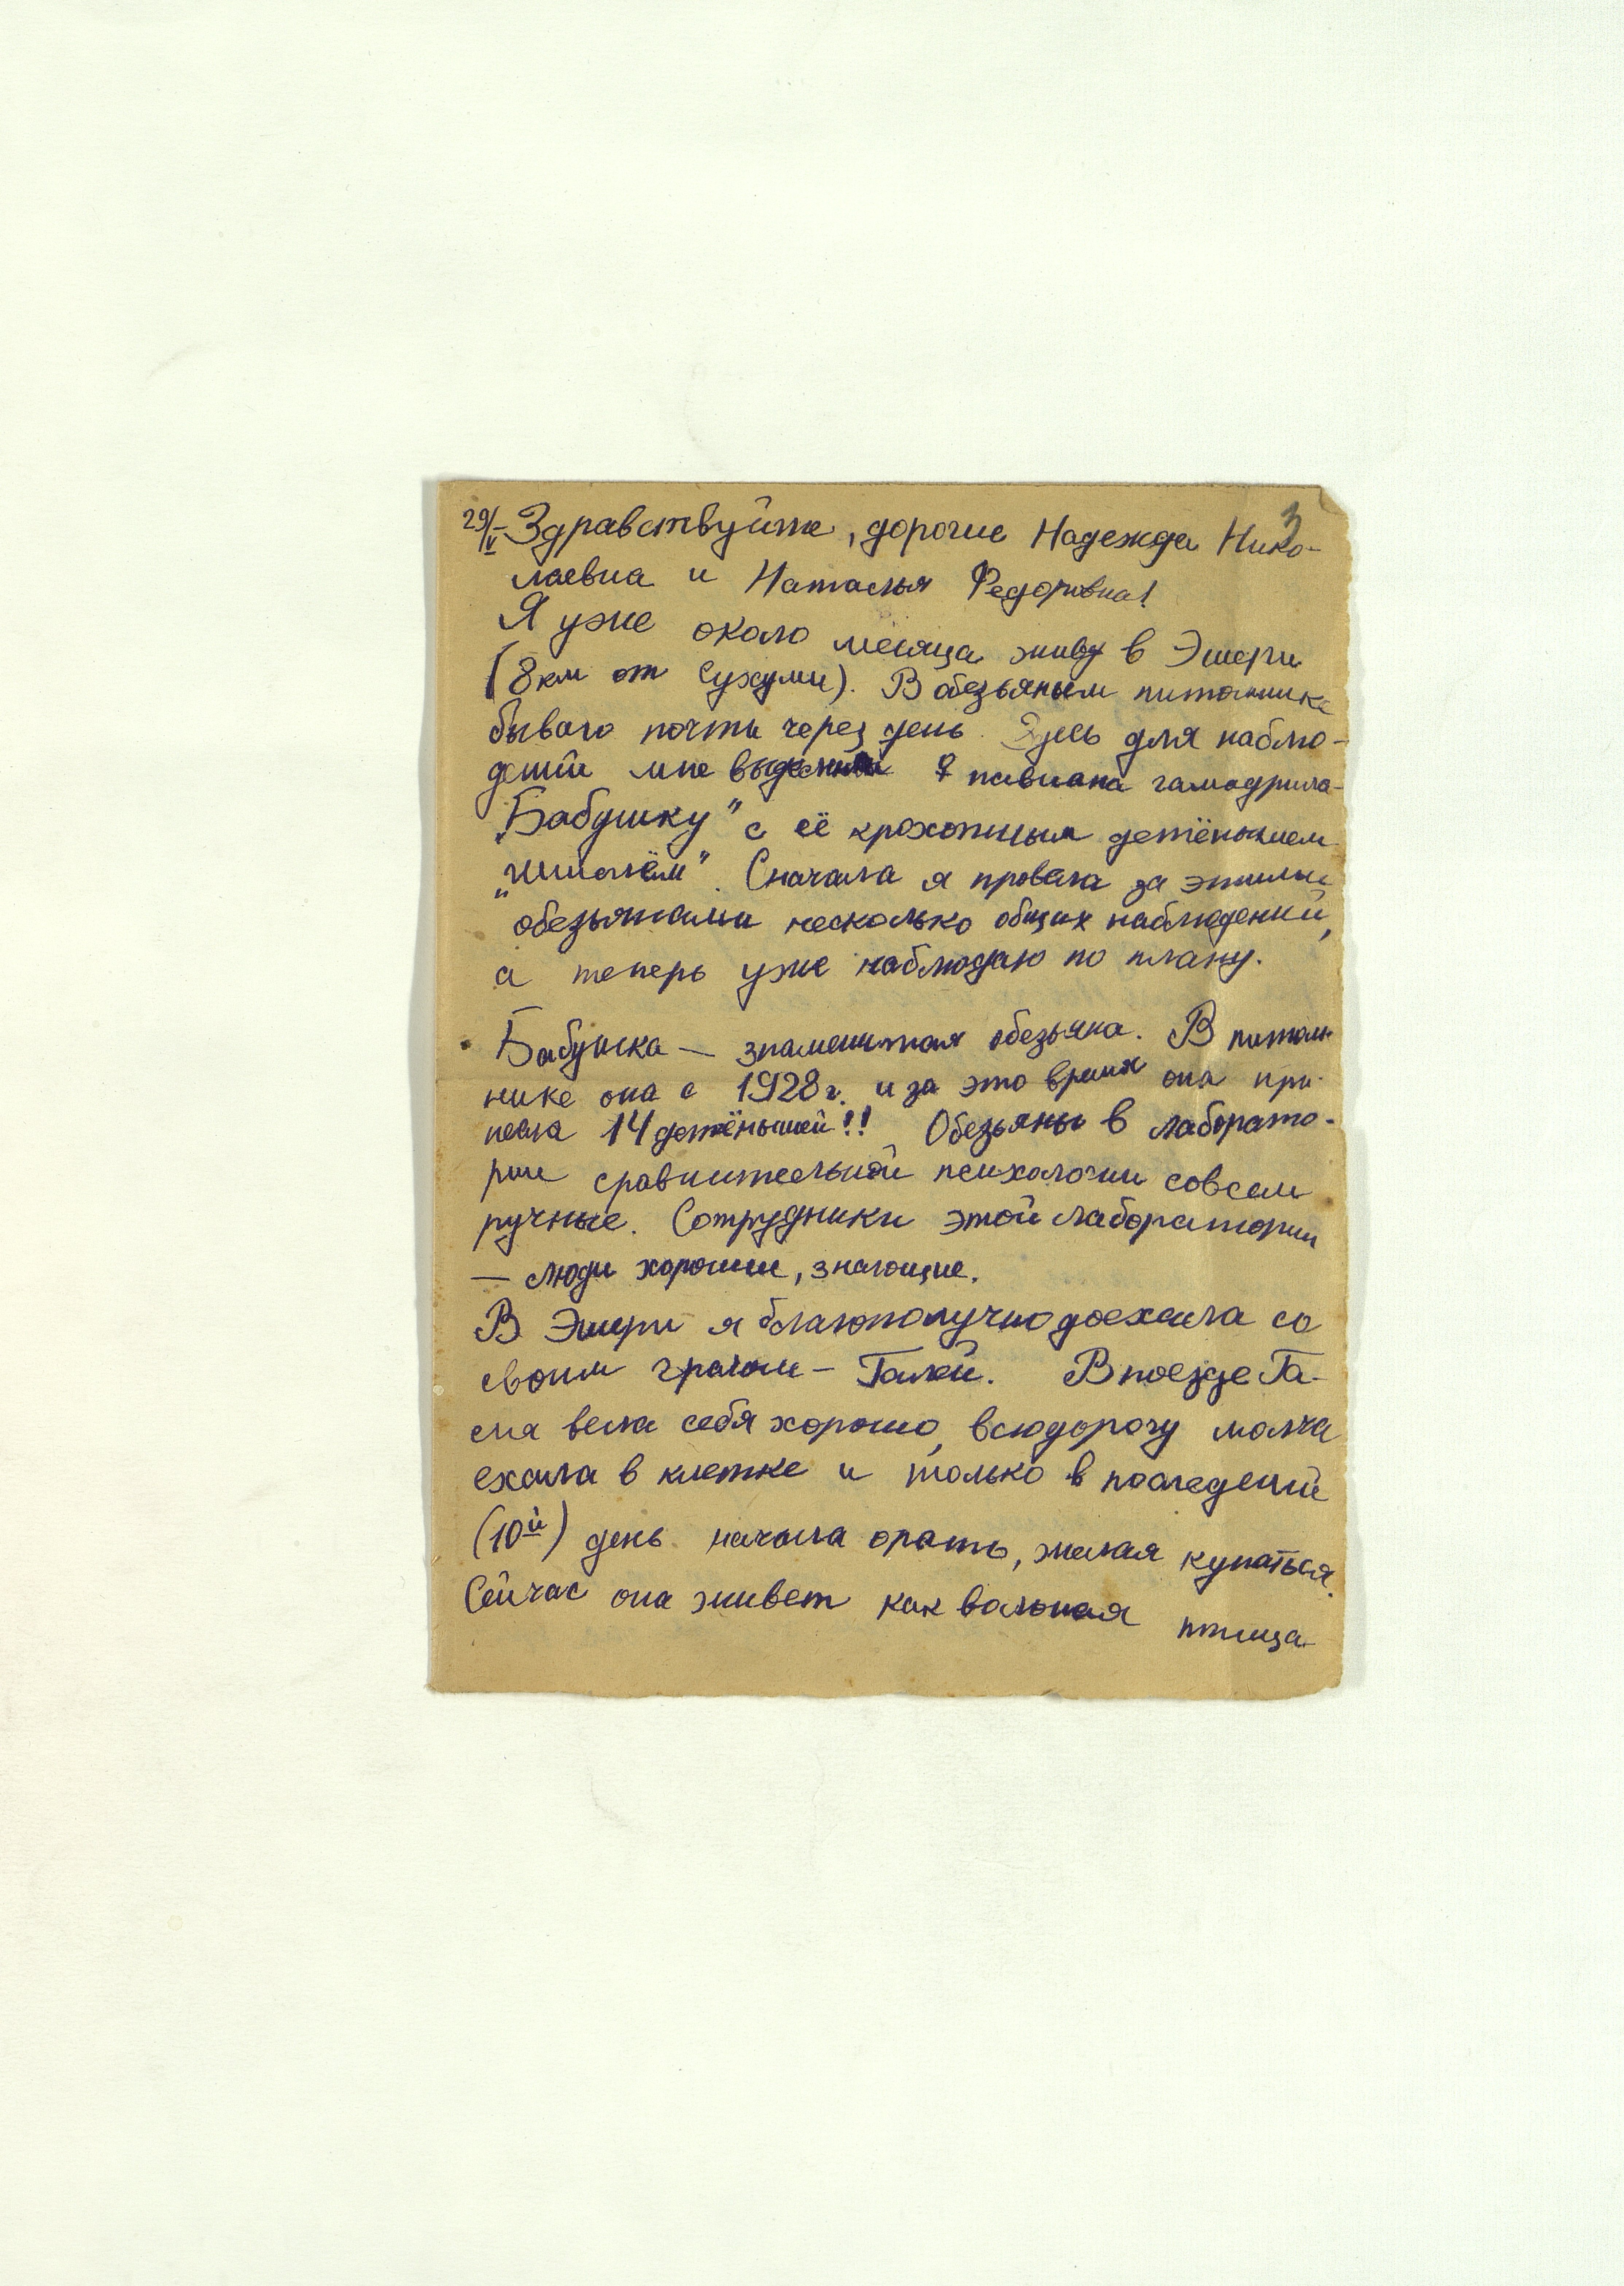 3
29/V Здравствуйте, дорогие Надежда Нико-
лаевна и Наталья Федоровна!
Я уже около месяца живу в Эшери
(8 км от Сухуми). В обезьяньем питомнике
бываю почти через день. Здесь для наблю-
дений мне выделили ♀ павиана гамадрила -
„Бабушку" с её крохотным детёнышем
„Шмелём". Сначала я провела за этими
обезьянами несколько общих наблюдений,
а теперь уже наблюдаю по плану.
Бабушка — знаменитая обезьяна. В питом-
нике она с 1928 г. и за это время она при-
несла 14 детёнышей!! Обезьяны в лаборато-
рии сравнительной психологии совсем
ручные. Сотрудники этой лаборатории
— люди хорошие, знающие.
В Эшери я благополучно доехала со
своим грачом - Галей. В поезде Га-
ля вела себя хорошо, всю дорогу молча
ехала в клетке и только в последний
(10й) день начала орать, желая купаться.
Сейчас она живет как вольная птица